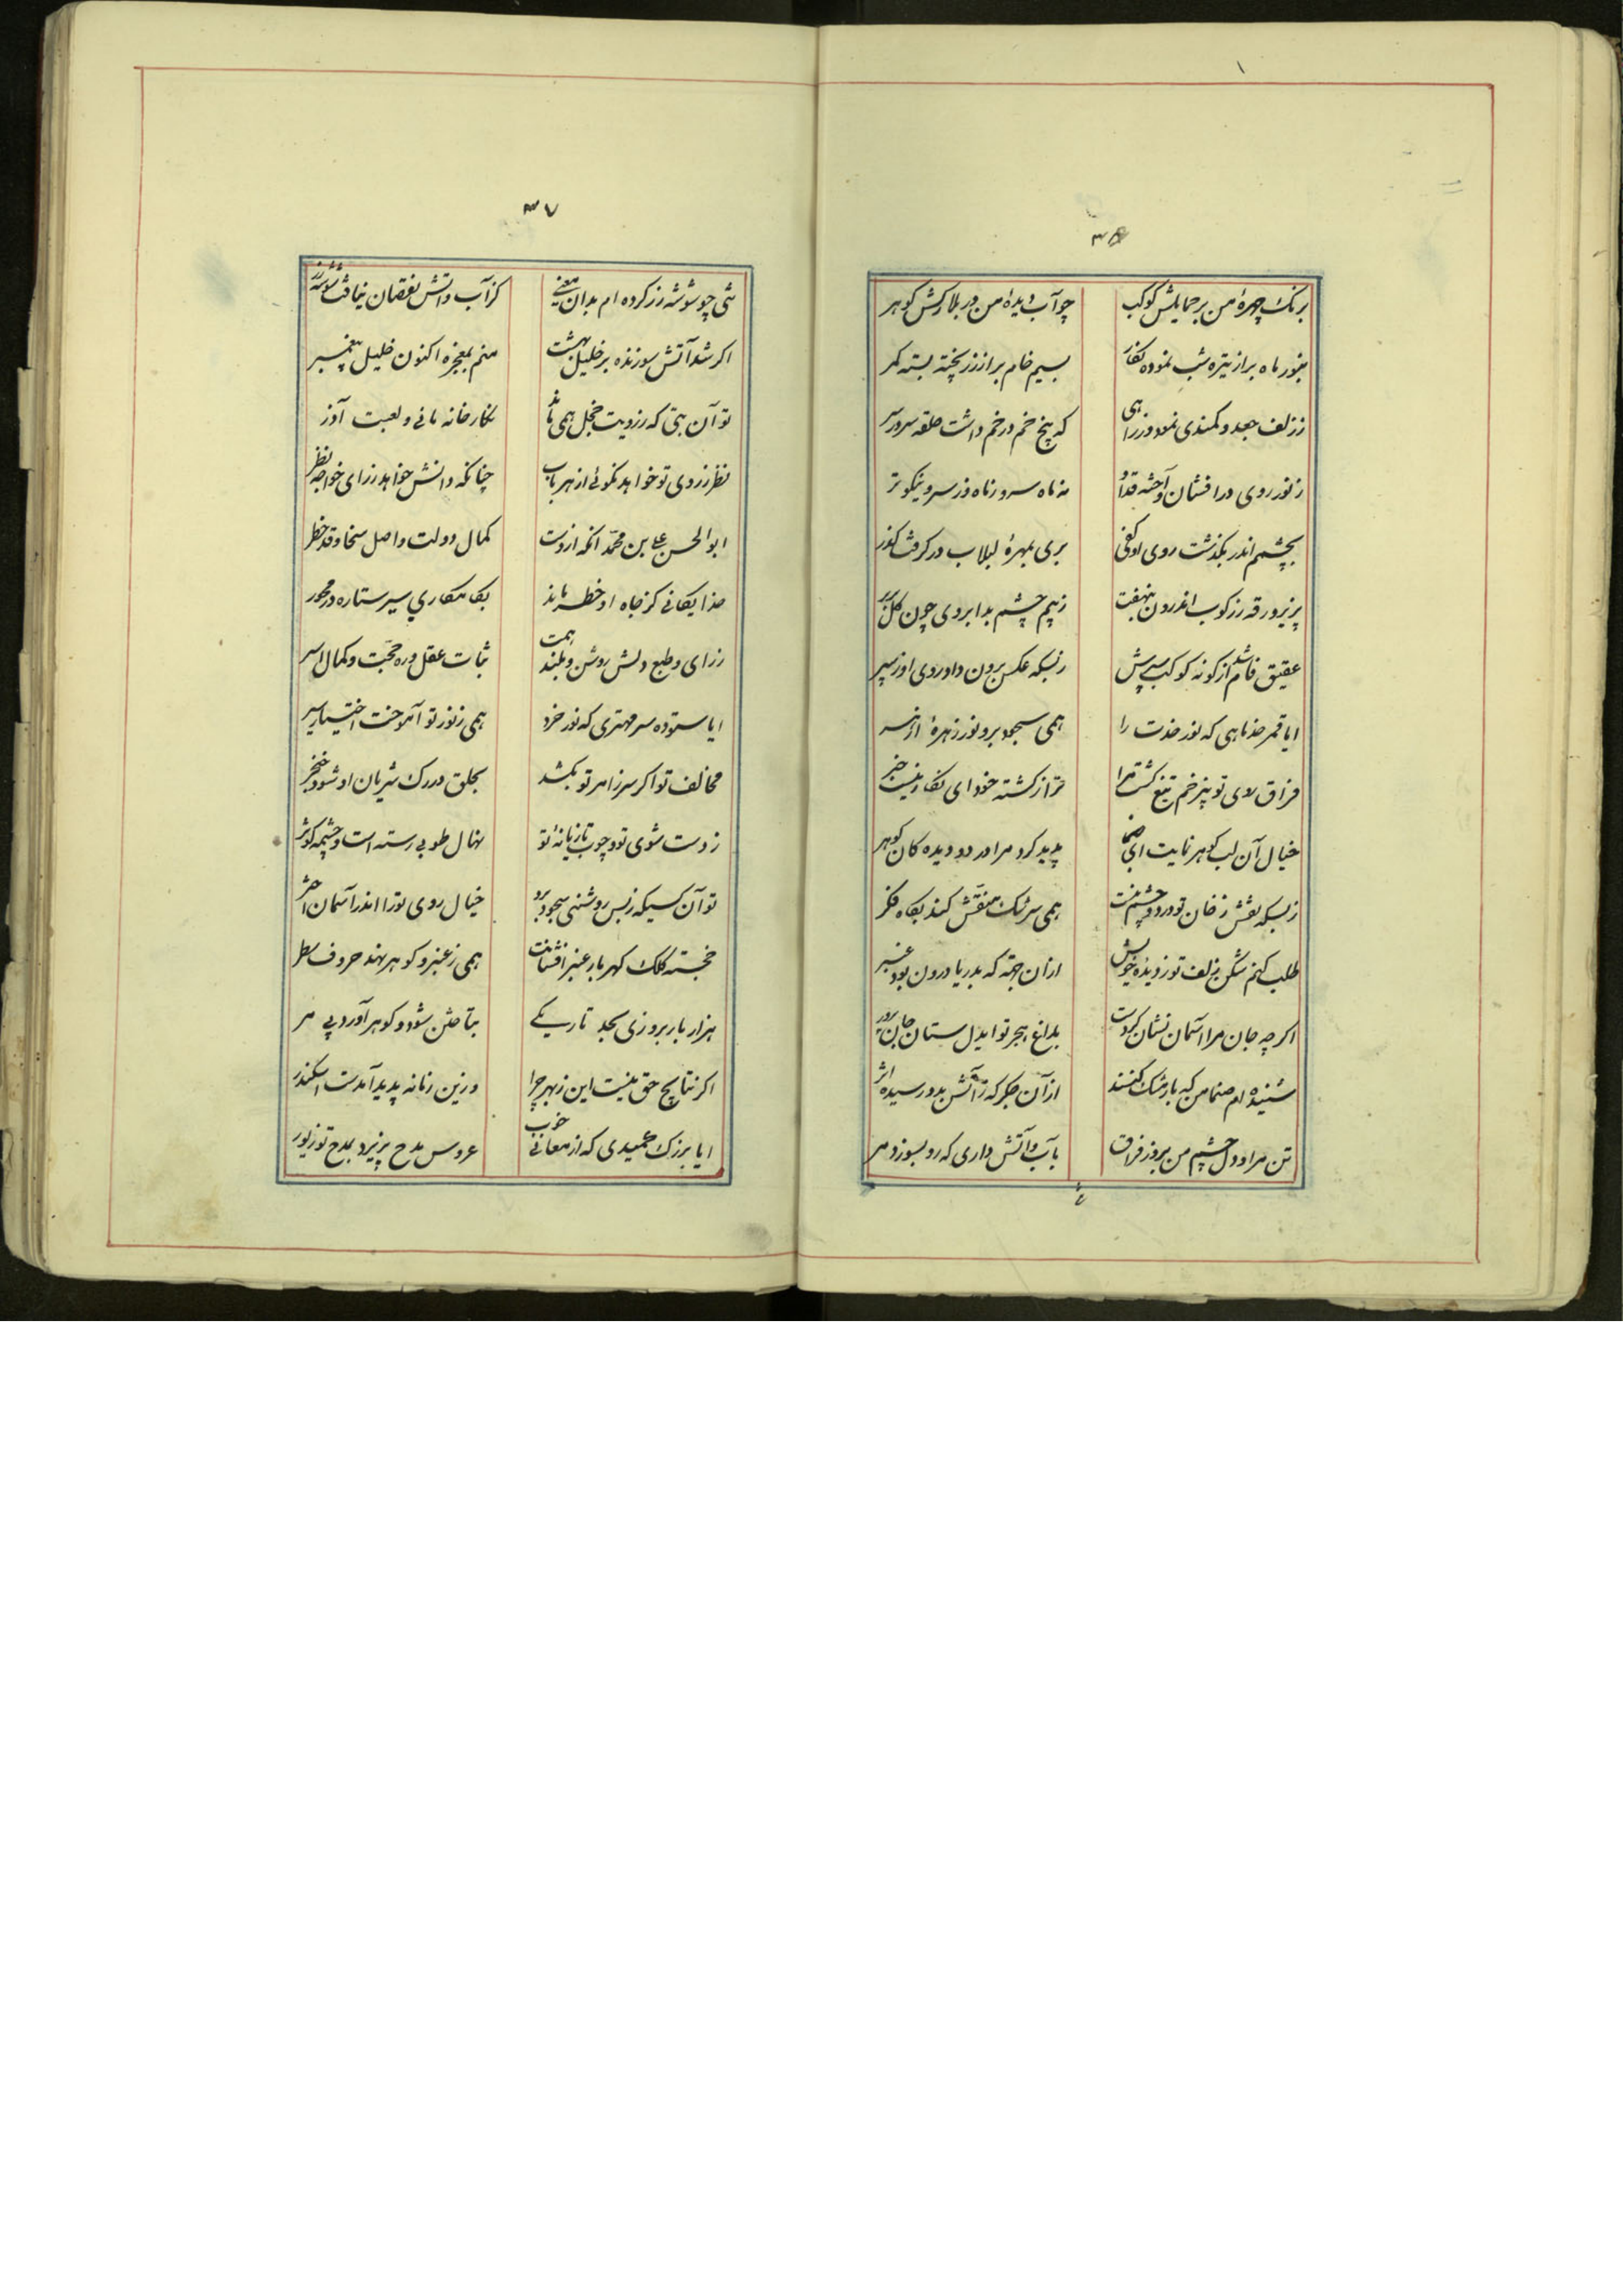 ۳۶
برنک چهرهٔ من بر حمایلش کوکب چو آب دیدهٔ من در بلارکش کوهر
بنور ماه بر از تیره شب نموده نگار بسیم خام بر از زر پخته بسته کمر
ز زلف جعد و کمندی نمود وز راهی که پنج خم در خم داشت حلقه سرور سر
ز نور روی در افشان و آخته قد او مه ماه سرو ز ماه وز سرو نیکوتر
بچشم اندر بگذشت روی او گفتی بری بمهرهٔ لبلاب در گرفت گذر
پر نیرو رقه زر کوب اندرون بنهفت ز بیم چشم بدا بروی چون گل
عقیق فام شد از گونه کوکب سپرش ز بسکه عکس برون داد روی او ز سپر
ایا قمر خد ماهی که نور خدت را همی سجود برو نور زهرهٔ ازهر
فراق روی تو بیزخم تیغ کشت مرا ترا ز کشته خود ای نگار نیست خبر
خیال آن لب گوهر نمایت ای صنما پدید کرد مرا در دو دیده کان گوهر
ز بسکه نقش زخان تو در دو چشم منست همی سرشک منقش کند بگاه فکر
طلب کنم شکن زلف تو ز دیدهٔ خویش از آن جهته که بدریا درون بود عنبر
اگر چه جان مرا آسمان نشان کردست بداغ هجر تو ایدل ستان جان پرور
شنیده ام صنما من که بار مشک کنند از آن جگر که ز آتش بدو رسیده اثر
تن مرا و دل و چشم من بروز فراق بآب و آتش داری که رو بسوز و مر
۳۷
شی چو شوشه زر کرده ام بدان معنی کز آب و آتش نقصان نیافت شوشه زر
اگر شد آتش سوزنده بر خلیل بهشت منم بمعجزه اکنون خلیل پیغمبر
تو آن بتی که ز رویت خجل همی ماند نگارخانه مانی و لعبت آذر
نظر ز روی تو خواهد نکوئی از هر باب چنانکه دانش خواهد ز رای خواجه نظر
ابوالحسن علی بن محمد آنکه ازوست کمال دولت و اصل سخا و قدر خطر
خدایگانی کز جاه او خطر ماند بکامکاری سیر ستاره در محور
ز رای و طبع و دلش روشن و بلند همت ثبات عقل و ره حجت و کمال سر
ایا ستوده سر مهتری که نور خرد همی ز نور تو آموخت اختیار سیر
مخالف تو اگر سر ز امر تو بکشد بحلق در رک شریان او شود خنجر
ز دست شوی تو و چوب تازیانه تو نهال طوبی رسته است و چشمه کوثر
تو آن کسیکه ز بس روشنی سجود برد خیال روی تو را اندر آسمان اختر
خجسته کلک گهربار عنبر افشانت همی ز عنبر و گوهر نهد حروف سطر
هزار بار بروزی بحد تاریکی بتاختن شود و گوهر آورد بی مر
اگر نتایج حق نیست این ز بهر چرا درین زمانه پدید آمدست اسکندر
ایا بزرگ عمیدی که از معانی خوب عروس مدح پذیرد بمدح تو زیور